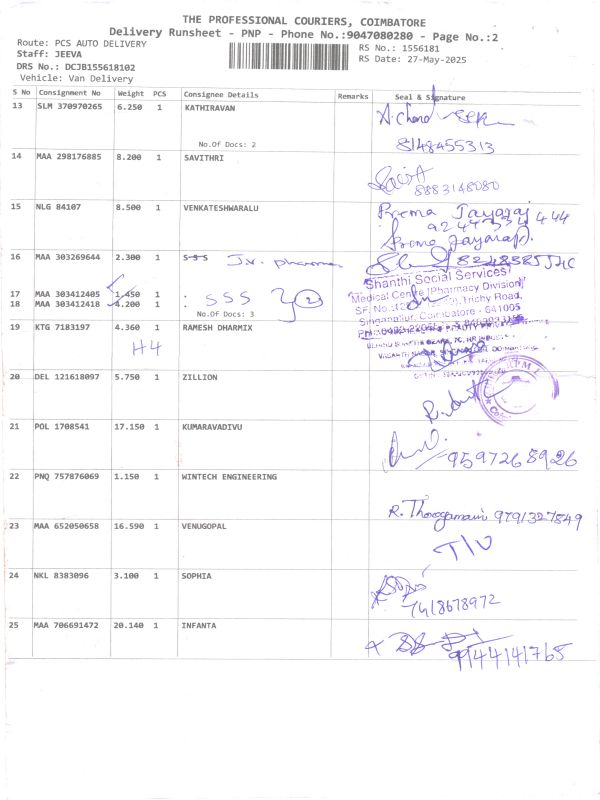 THE PROFESSIONAL COURIERS, COIMBATORE
Delivery Runsheet - PNP - Phone No.:9047080280 - Page No.:2
Route: PCS AUTO DELIVERY
RS No.: 1556181
Staff: JEEVA
RS Date: 27-May-2025
DRS No.: DCJB155618102
Vehicle: Van Delivery
S No Consignment No Weight PCS Consignee Details Remarks Seal & Signature
13 SLM 370970265 6.250 1 KATHIRAVAN
No.Of Docs: 2
8148455313
14 MAA 298176885 8.200 1 SAVITHRI
8883148080
15 NLG 84107 8.500 1 VENKATESHWARALU
Prema Jayaraj
Prema Jayaraj.
16 MAA 303269644 2.300 1 S S S J.V. pharma
Shanthi Social Services
Medical Centre (Pharmacy Division)
17 MAA 303412405 1.450 1 SSS 2
18 MAA 303412418 4.200 1
No.Of Docs: 3
Trichy Road,
Singanallur, Coimbatore - 641005
19 KTG 7183197 4.360 1 RAMESH DHARMIX
H4
20 DEL 121618097 5.750 1 ZILLION
21 POL 1708541 17.150 1 KUMARAVADIVU
9597268926
22 PNQ 757876069 1.150 1 WINTECH ENGINEERING
9791327849
23 MAA 652050658 16.590 1 VENUGOPAL
T/V
24 NKL 8383096 3.100 1 SOPHIA
7418678972
25 MAA 706691472 20.140 1 INFANTA
9144141765